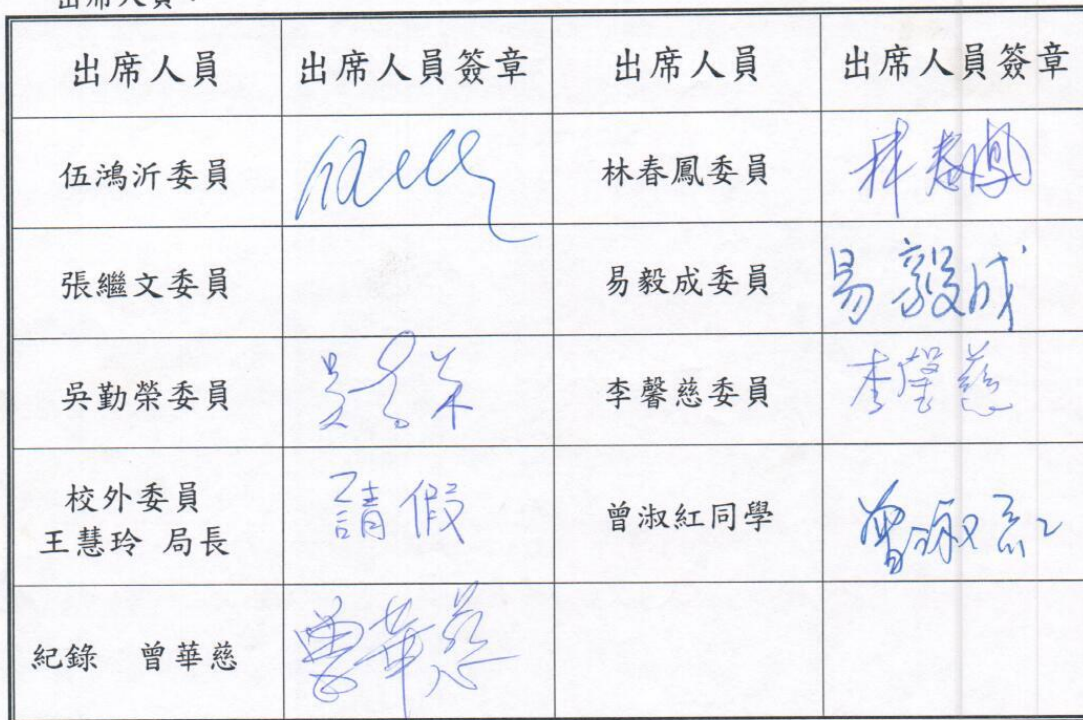 出席人員：
出席人員 出席人員簽章 出席人員 出席人員簽章
伍鴻沂委員 林春鳳委員 林春鳳
張繼文委員 易毅成委員 易毅成
吳勤榮委員 吳勤榮 李馨慈委員 李馨慈
校外委員
王慧玲 局長 請假 曾淑紅同學 曾淑紅
紀錄 曾華慈 曾華慈